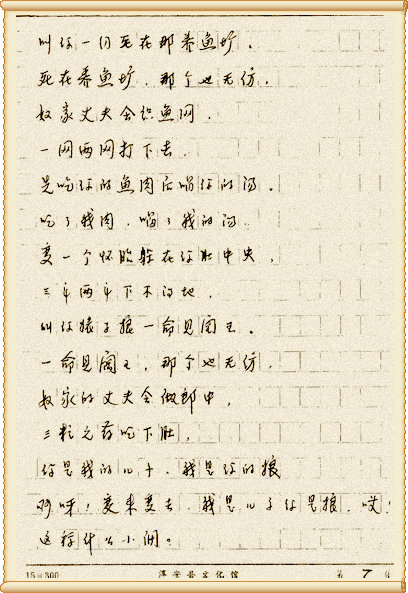 叫你一死在那养鱼圹。
死在养鱼圹，那个也无仿，
奴家丈夫会织鱼网，
一网两网打下去，
先吃你的鱼肉后喝你的汤。
吃了我肉，喝了我的汤
变一个怀胎躲在你肚中央，
三年两年下不得地，
叫你娘子娘一命见阎王。
一命见阎王，那个也无仿，
奴家的丈夫会做郎中，
三粒之药吃下肚，
你是我的儿子，我是你的娘
啊呀！变来变去，我是儿子你是娘，哎！
这称什么小调。
300 淳安县文化馆 第 7